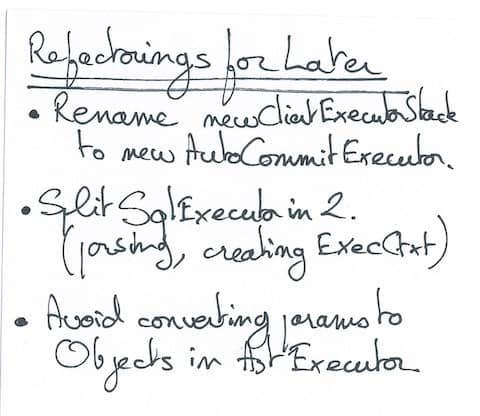 Refactorings for Later
• Rename newClientExecutorStack
to new AutoCommitExecutor.
• Split SqlExecutor in 2.
(parsing, creating ExecCtxt)
• Avoid converting params to
Objects in AstExecutor